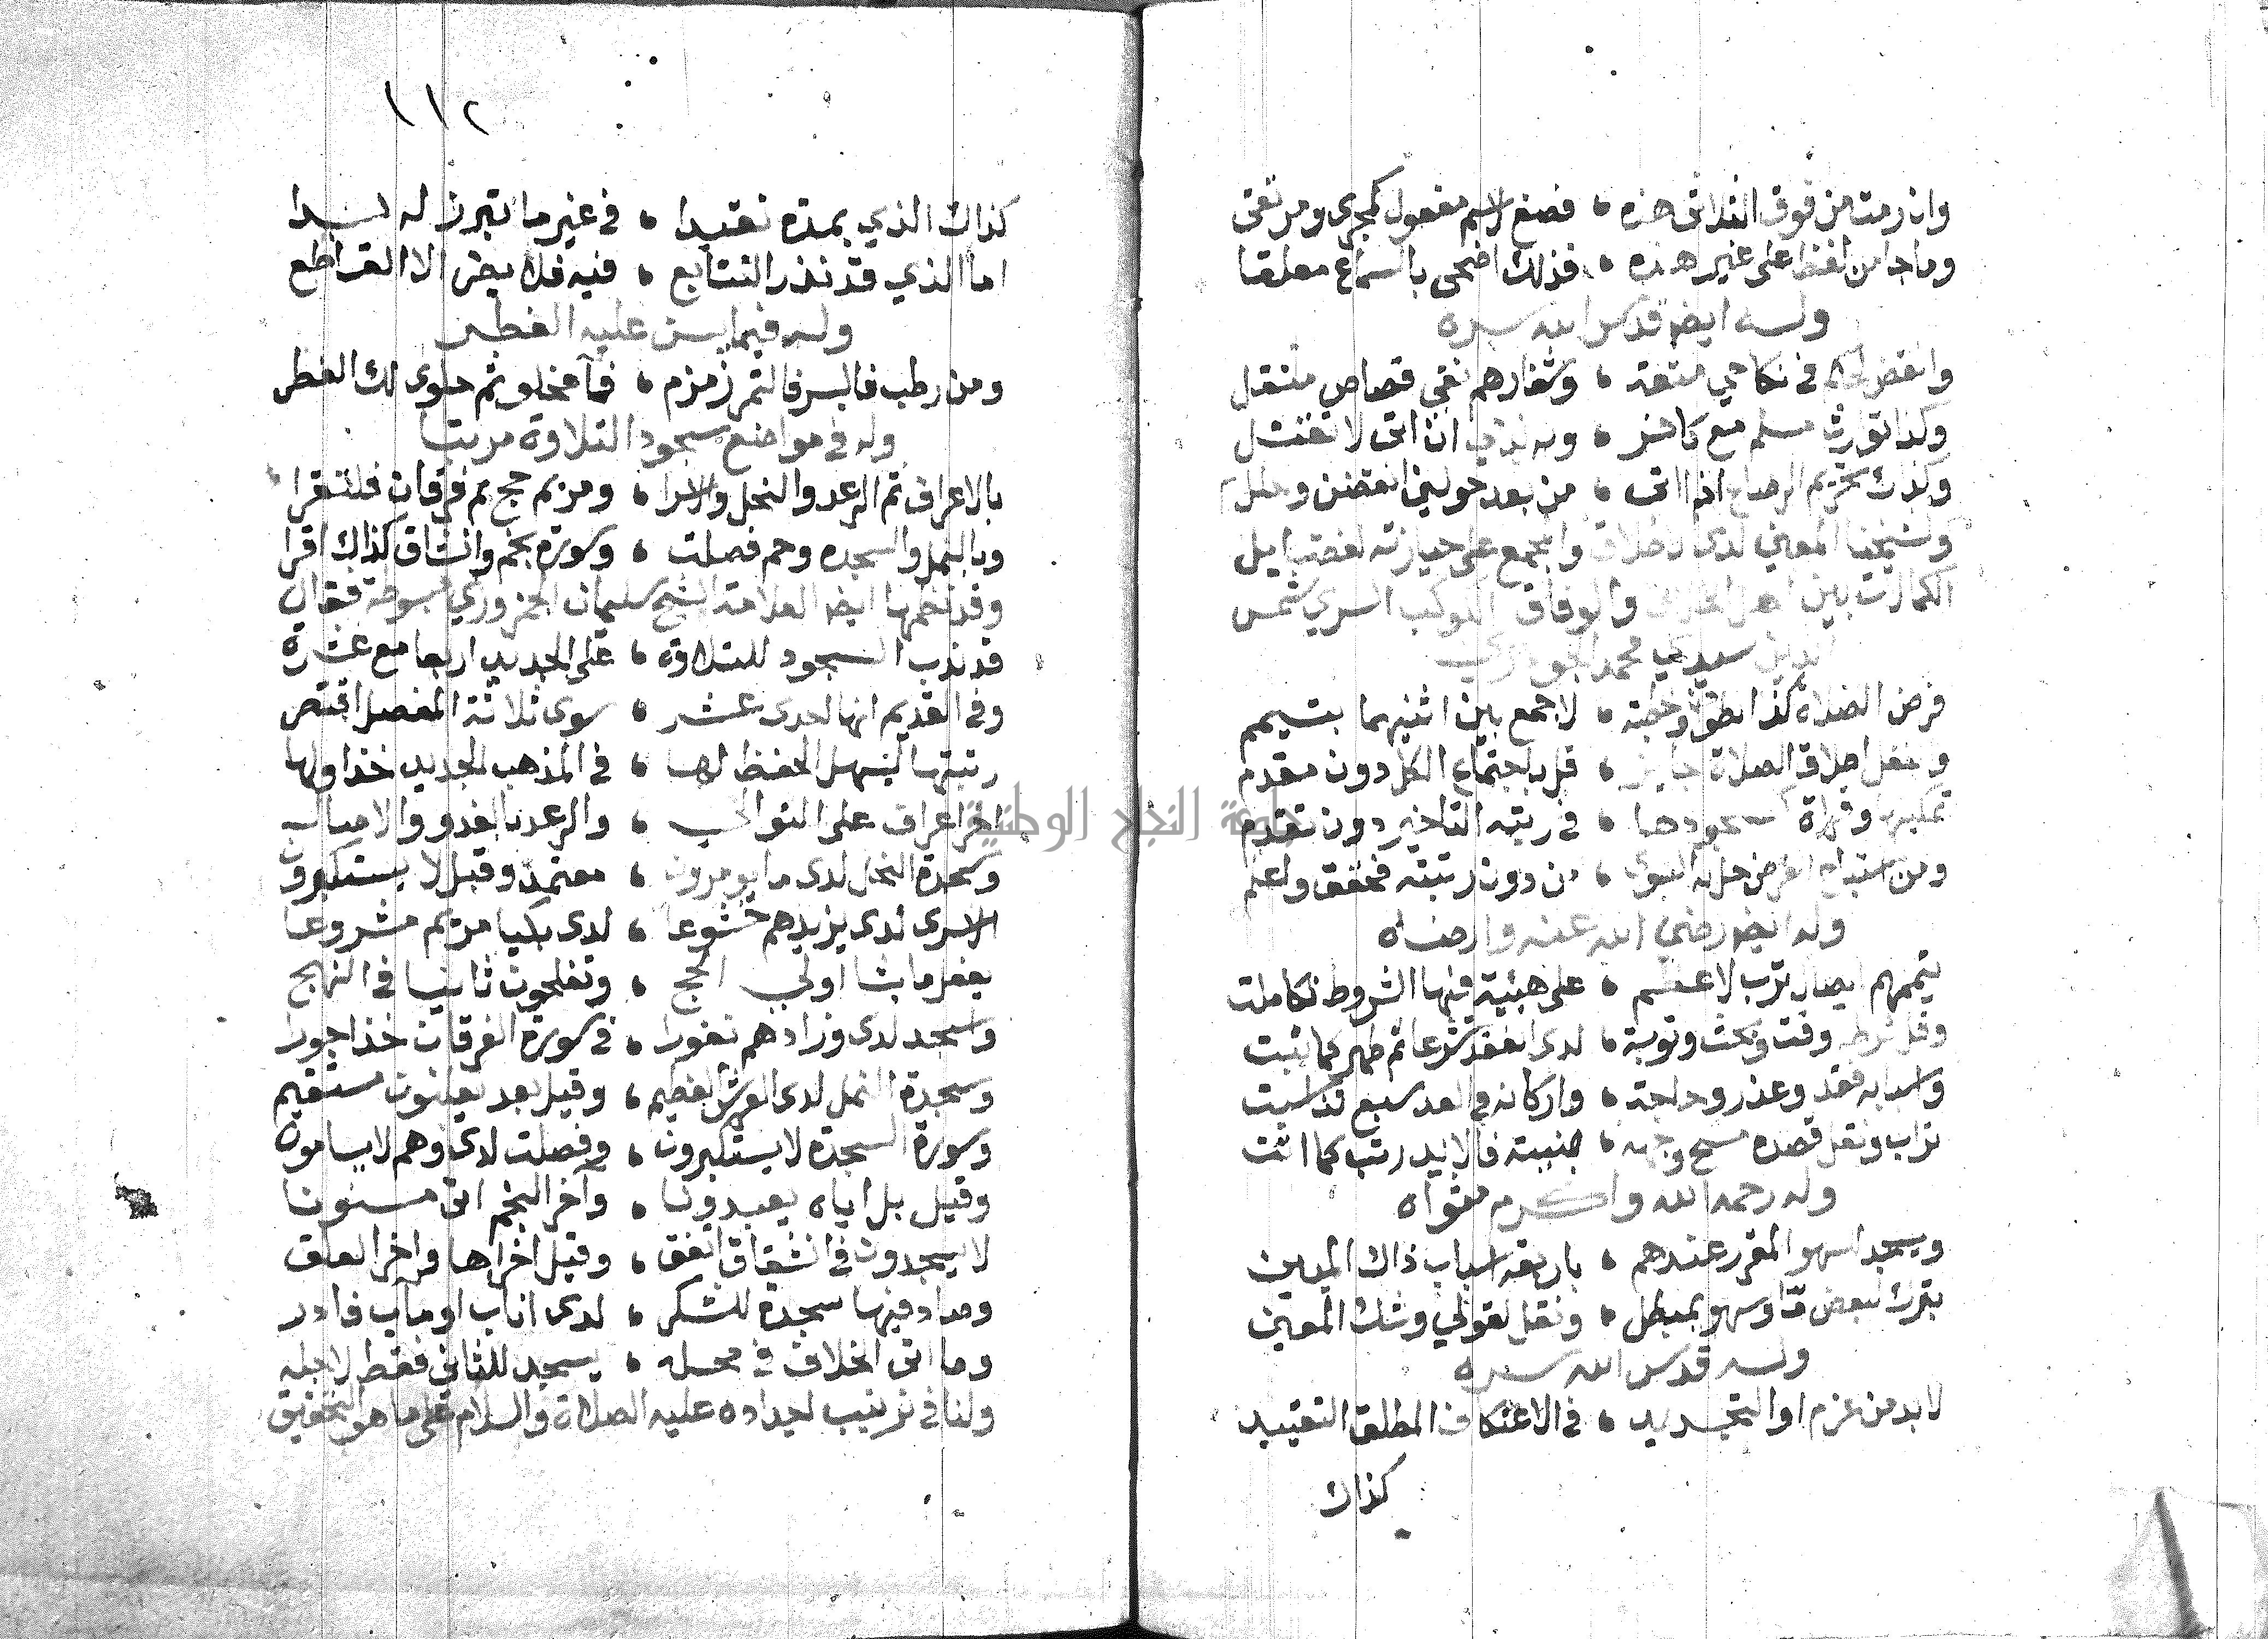 وان رمت من فوق الثلاثى هذه ، فصغ لاسم مفعول كمجرى ومرتقى
وما جا من لفظ على غير هذه ، فذلك اضحى بالسماع معلقا
وله ايضا قدس الله سره
وانقض في نكاحي متعة ، وشغارهم نفي قصاص مثقل
وكذا توريث مسلم مع كافر ، ان اتى لا تقتل
وكذاك تحريم الرضاع اذا اتى ، من بعد حولين انقضن
وشيخنا لدى الخلاف والمجمع على حيازته لقصب
الكمالات بين اهل الخلاف والوفاق الكوكب السري شمس
الدين سيدي محمد الجوهري
فرض الصلاة كذا طواف وخطبة ، لا جمع بين اثنيهما بتيمم
ونفل اطلاق الصلاة جنازة ، قل باجتماع الكل دون مقدم
سجودها ، في رتبه التاخير دون تقدم
ومن استباح الفرض حل له السوى ، من دون رتبته فحقق واعلم
وله ايضا رضي الله عنه وارضاه
تيممهم ايصال ترب لاعظم ، على هيئية فيها الشروط تكاملت
وقل شرطه وقت وبحث وتوبة ، لدى الفقد شرعا ثم طهر كما ثبت
واسبابه فقد وعذر وحاجة ، واركانه في العد سبع قد اثبت
تراب ونقل قصده مسح وجهه ، بنيته فالايد رتب كما اتت
وله رحمه الله واكرم مثواه
ويسجد لسهو المقرر عندهم ، باربعة اسباب ذاك اليمين
بترك لبعض ثم سهو بمبطل ، ونقل لقولي وشك المعين
وله قدس الله سره
لابد من عزم او التجديد ، في الاعتكاف المطلق التقييد
كذاك
١١٢
كذاك الذي بمدة تقيدا ، في غير ما تبرز له بدا
اما الذي قد نذر التتابع ، فيه فلا يضر الا القاطع
وله فيما يسن عليه الفطر
ومن رطب فالبسر فالتمر زمزم ، فماء فحلو ثم حلوى لك الفطر
وله في مواضع سجود التلاوة مرتبا
بالاعراف ثم الرعد والنحل والاسرا ، ومريم حج ثم فرقان فلتقرا
وبالنمل والسجده وحم فصلت ، وسورة نجم وانشقاق كذاك اقرا
وقد نظمها ايضا العلامة الشيخ سليمان الجمزوري فقال
قد ندب السجود للتلاوة ، على الجديد اربعا مع عشرة
وفي القديم انها احدى عشر ، سوى ثلاثة المفصل اقتصر
رتبتها ليسهل الحفظ لها ، في المذهب الجديد خذ اولها
اخر اعراف على التوالي ، والرعد بالغدو والاصال
وسجدة النحل لدى ما يومرون ، معتمد وقيل لا يستكبرون
الاسرى لدى يزيدهم خشوعا ، لدى بكيا مريم مشروعا
يفعل ما يشا اولى الحج ، وتفلحون ثانيا في النهج
واسجد لدى وزادهم نفورا ، في سورة الفرقان خذ اجورا
وسجدة النمل لدى العرش العظيم ، وقيل بعد يعلنون مستقيم
وسورة السجدة لا يستكبرون ، وفصلت لدى وهم لا يسامون
وقيل بل اياه يعبدونا ، وآخر النجم اتى مسنونا
لا يسجدون في انشقاق اتفق ، وقيل اخراها واخر العلق
وصاد فيها سجدة للشكر ، لدى اناب او مآب فادر
وما اتى الخلاف في محله ، يسجد للثاني فقط لاجله
ولنا في ترتيب اجداده عليه الصلاة والسلام على ما هو التحقيق
جامعة النجاح الوطنية